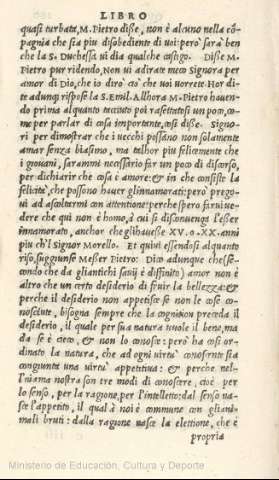 LIBRO
quasi turbata, M. Pietro disse, non è alcuno nella cō-
pagnia che sia piu disobediente di voi: però sarà ben
che la S. Duchessa vi dia qualche castigo. Disse M.
Pietro pur ridendo, Non vi adirate meco Signora per
amor di Dio, che io dirò ciò che voi vorrete. Hor di-
te adunq; rispose la S. Emil. Allhora M. Pietro hauen-
do prima alquanto tacciuto poi rasettatosi un poco, co-
me per parlar di cosa importante, così disse. Signo-
ri per dimostrar che i vecchi possano non solamente
amar senza biasimo, ma talhor piu felicemente che
i giouani, sarammi necessario far un poco di discorso,
per dichiarir che cosa è amore: & in che consiste la
felicità, che possono hauer gl'innamorati: però prego-
ui ad ascoltarmi con attentione: perche spero farui ue-
dere che qui non è homo, à cui si disconuenga l'esser
innamorato, anchor che gli hauesse XV. o. XX. anni
piu ch'l Signor Morello. Et quiui essendosi alquanto
riso, suggiunse Messer Pietro: Dico adunque che se-
condo che da gli antichi sauij è diffinito; amor non è
altro che un certo desiderio di fruir la bellezza: &
perche il desiderio non appetisce se non le cose co-
nosciute, bisogna sempre che la cognition preceda il
desiderio, il quale per sua natura vuole il bene, ma
da se è cieco, & non lo conosce: però ha così or-
dinato la natura, che ad ogni virtù conoscente sia
congiunta una virtù appetitiua: & perche nel-
l'anima nostra son tre modi di conoscere, cioè per
lo senso, per la ragione, per l'intelletto: dal senso na-
sce l'appetito, il qual à noi è commune con gli ani-
mali bruti: dalla ragione nasce la elettione, che è
propria
Ministerio de Educación, Cultura y Deporte